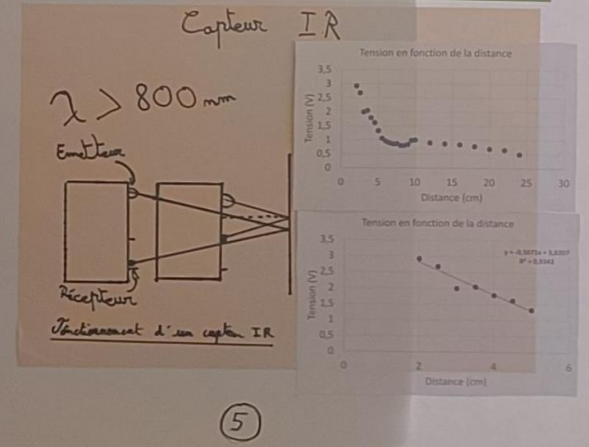 Capteur IR
λ > 800 nm
Emetteur
Récepteur
Fonctionnement d'un capteur IR
Tension en fonction de la distance
Tension (V)
3,5
3
2,5
2
1,5
1
0,5
0
0 5 10 15 20 25 30
Distance (cm)
Tension en fonction de la distance
Tension (V)
3,5
3
2,5
2
1,5
1
0,5
0
0 2 4 6
Distance (cm)
5